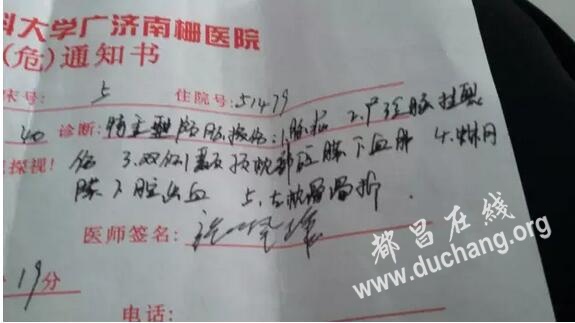 科大学广济南栅医院
(危)通知书
床号: 5 住院号: 51479
40 诊断: 特重型颅脑损伤: 1.脑疝 2.广泛脑挫裂
探视! 伤 3.双侧颞顶枕部硬膜下血肿 4.蛛网
膜下腔出血 5.左枕骨骨折.
医师签名:
19分
电话:
都昌在线
www.duchang.org